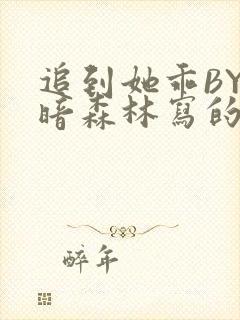 追到她乖BY
暗森林寫的
醉年